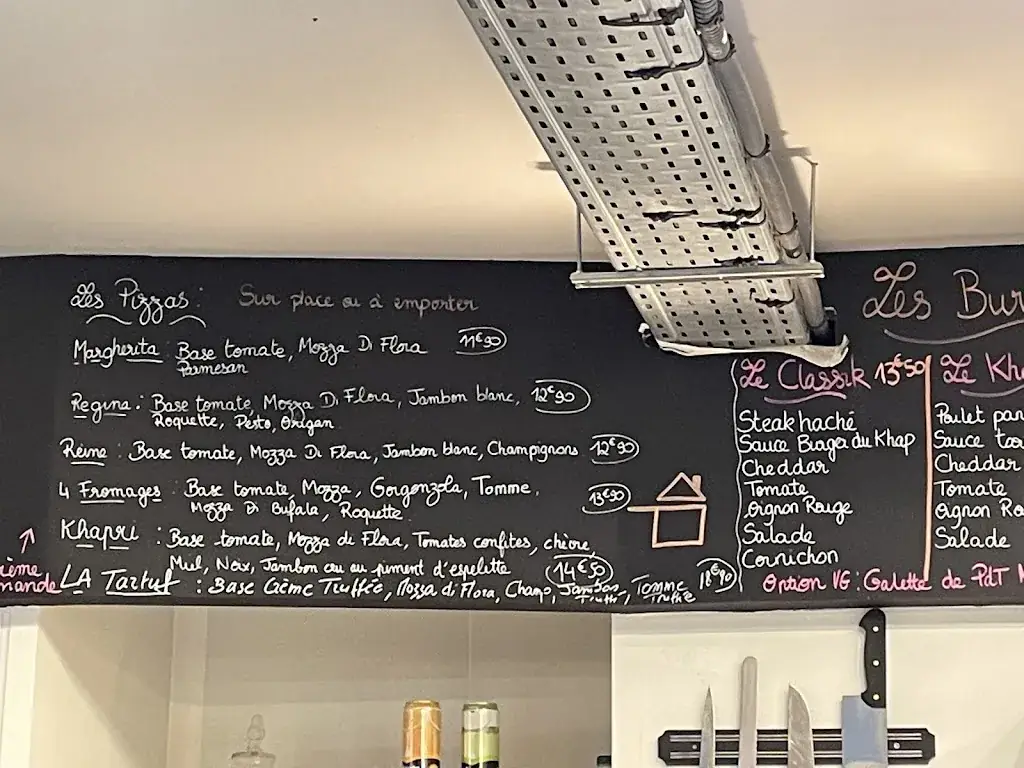 Les Pizzas: Sur place ou à emporter
Margherita : Base tomate, Mozza Di Flora 11€90
Parmesan
Regina : Base tomate, Mozza Di Flora, Jambon blanc, 12€90
Roquette, Pesto, Origan
Reine : Base tomate, Mozza Di Flora, Jambon blanc, Champignons 12€90
4 Fromages : Base tomate, Mozza, Gorgonzola, Tomme, 13€90
Mozza Di Bufala, Roquette
Khapri : Base tomate, Mozza di Flora, Tomates confites, chèvre,
Miel, Noix, Jambon cru au piment d'espelette 14€50
LA Tartuf : Base Crème Truffée, Mozza di Flora, Champ, Jambon Truffé, Tomme Truffée
Les Bur
Le Classik 13€50
Steak haché
Sauce Burger du Khap
Cheddar
Tomate
Oignon Rouge
Salade
Cornichon
Le Kha
Poulet pan
Sauce
Cheddar
Tomate
Oignon Ro
Salade
Option VG : Galette de PdT